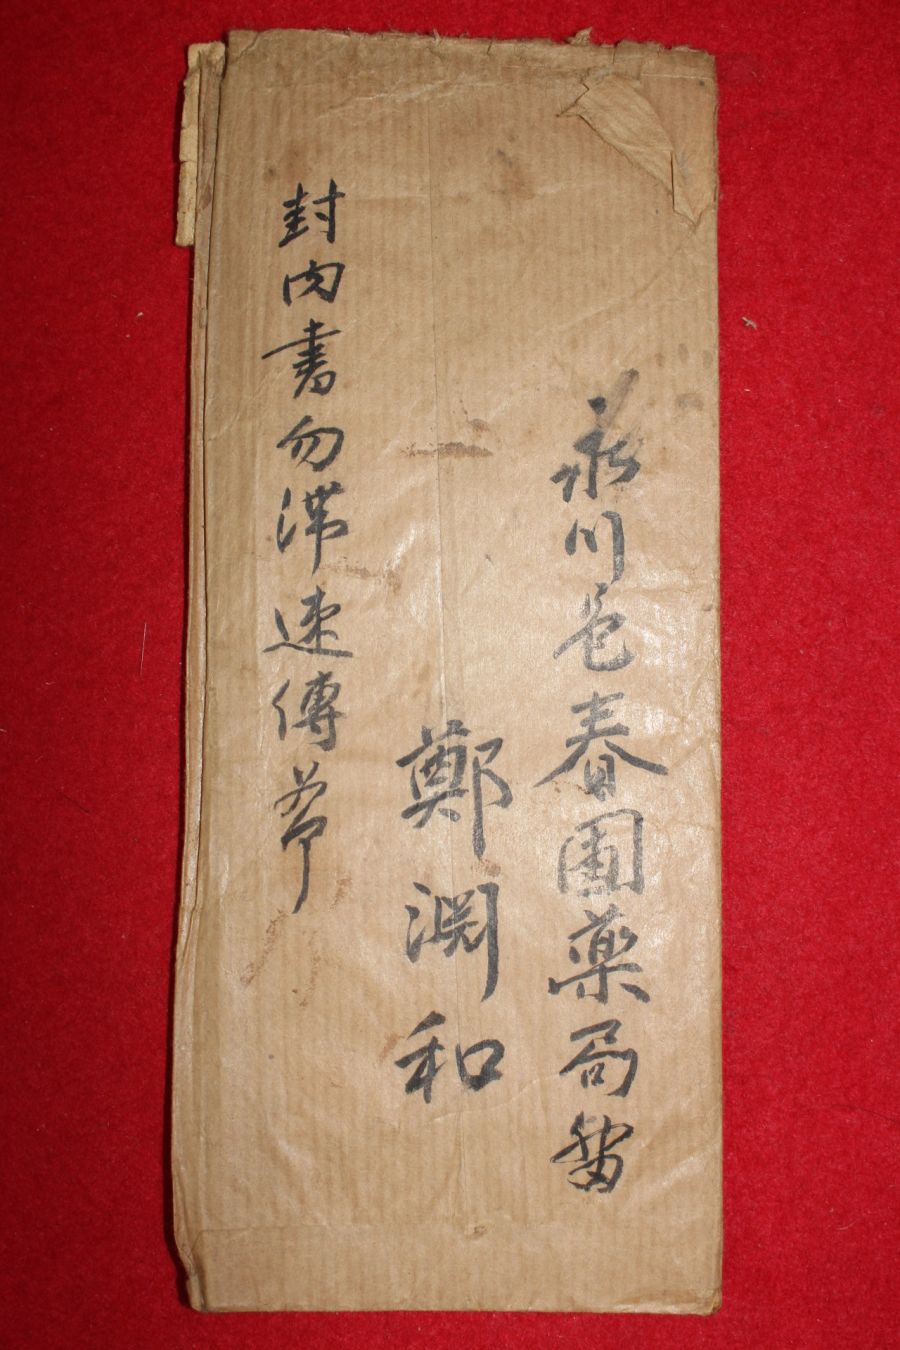 永川邑春園薬局留
鄭淵和
封内書勿滞速傳